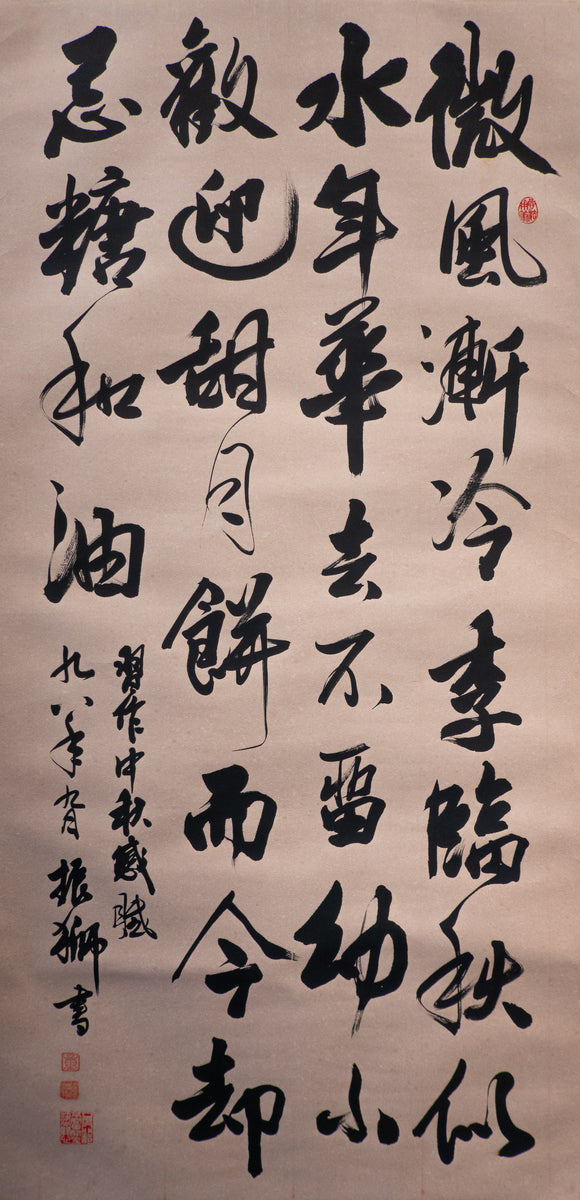 微風漸冷季臨秋似
水年華去不留幼小
歡迎甜月餅而今却
忌糖和油
習作中秋感賦
九八年九月振獅書